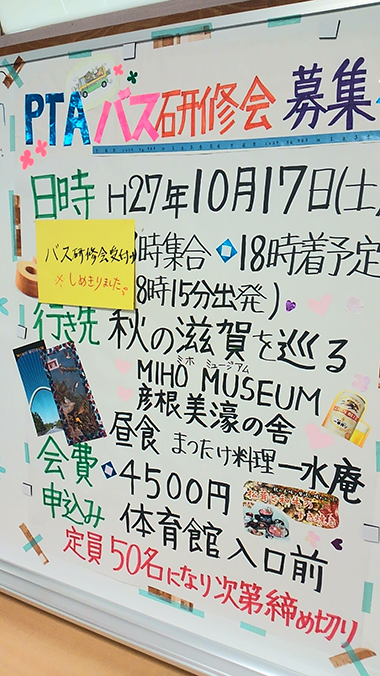 PTAバス研修会 募集
日時 H27年10月17日(土
時集合 18時着予定
8時15分出発)
バス研修会受付は
※しめきりました。
行き先 秋の滋賀を巡る
ミホ ミュージアム
MIHO MUSEUM
彦根美濠の舎
昼食 まつたけ料理一水庵
会費 4500円
申込み 体育館入口前
定員50名になり次第締め切り